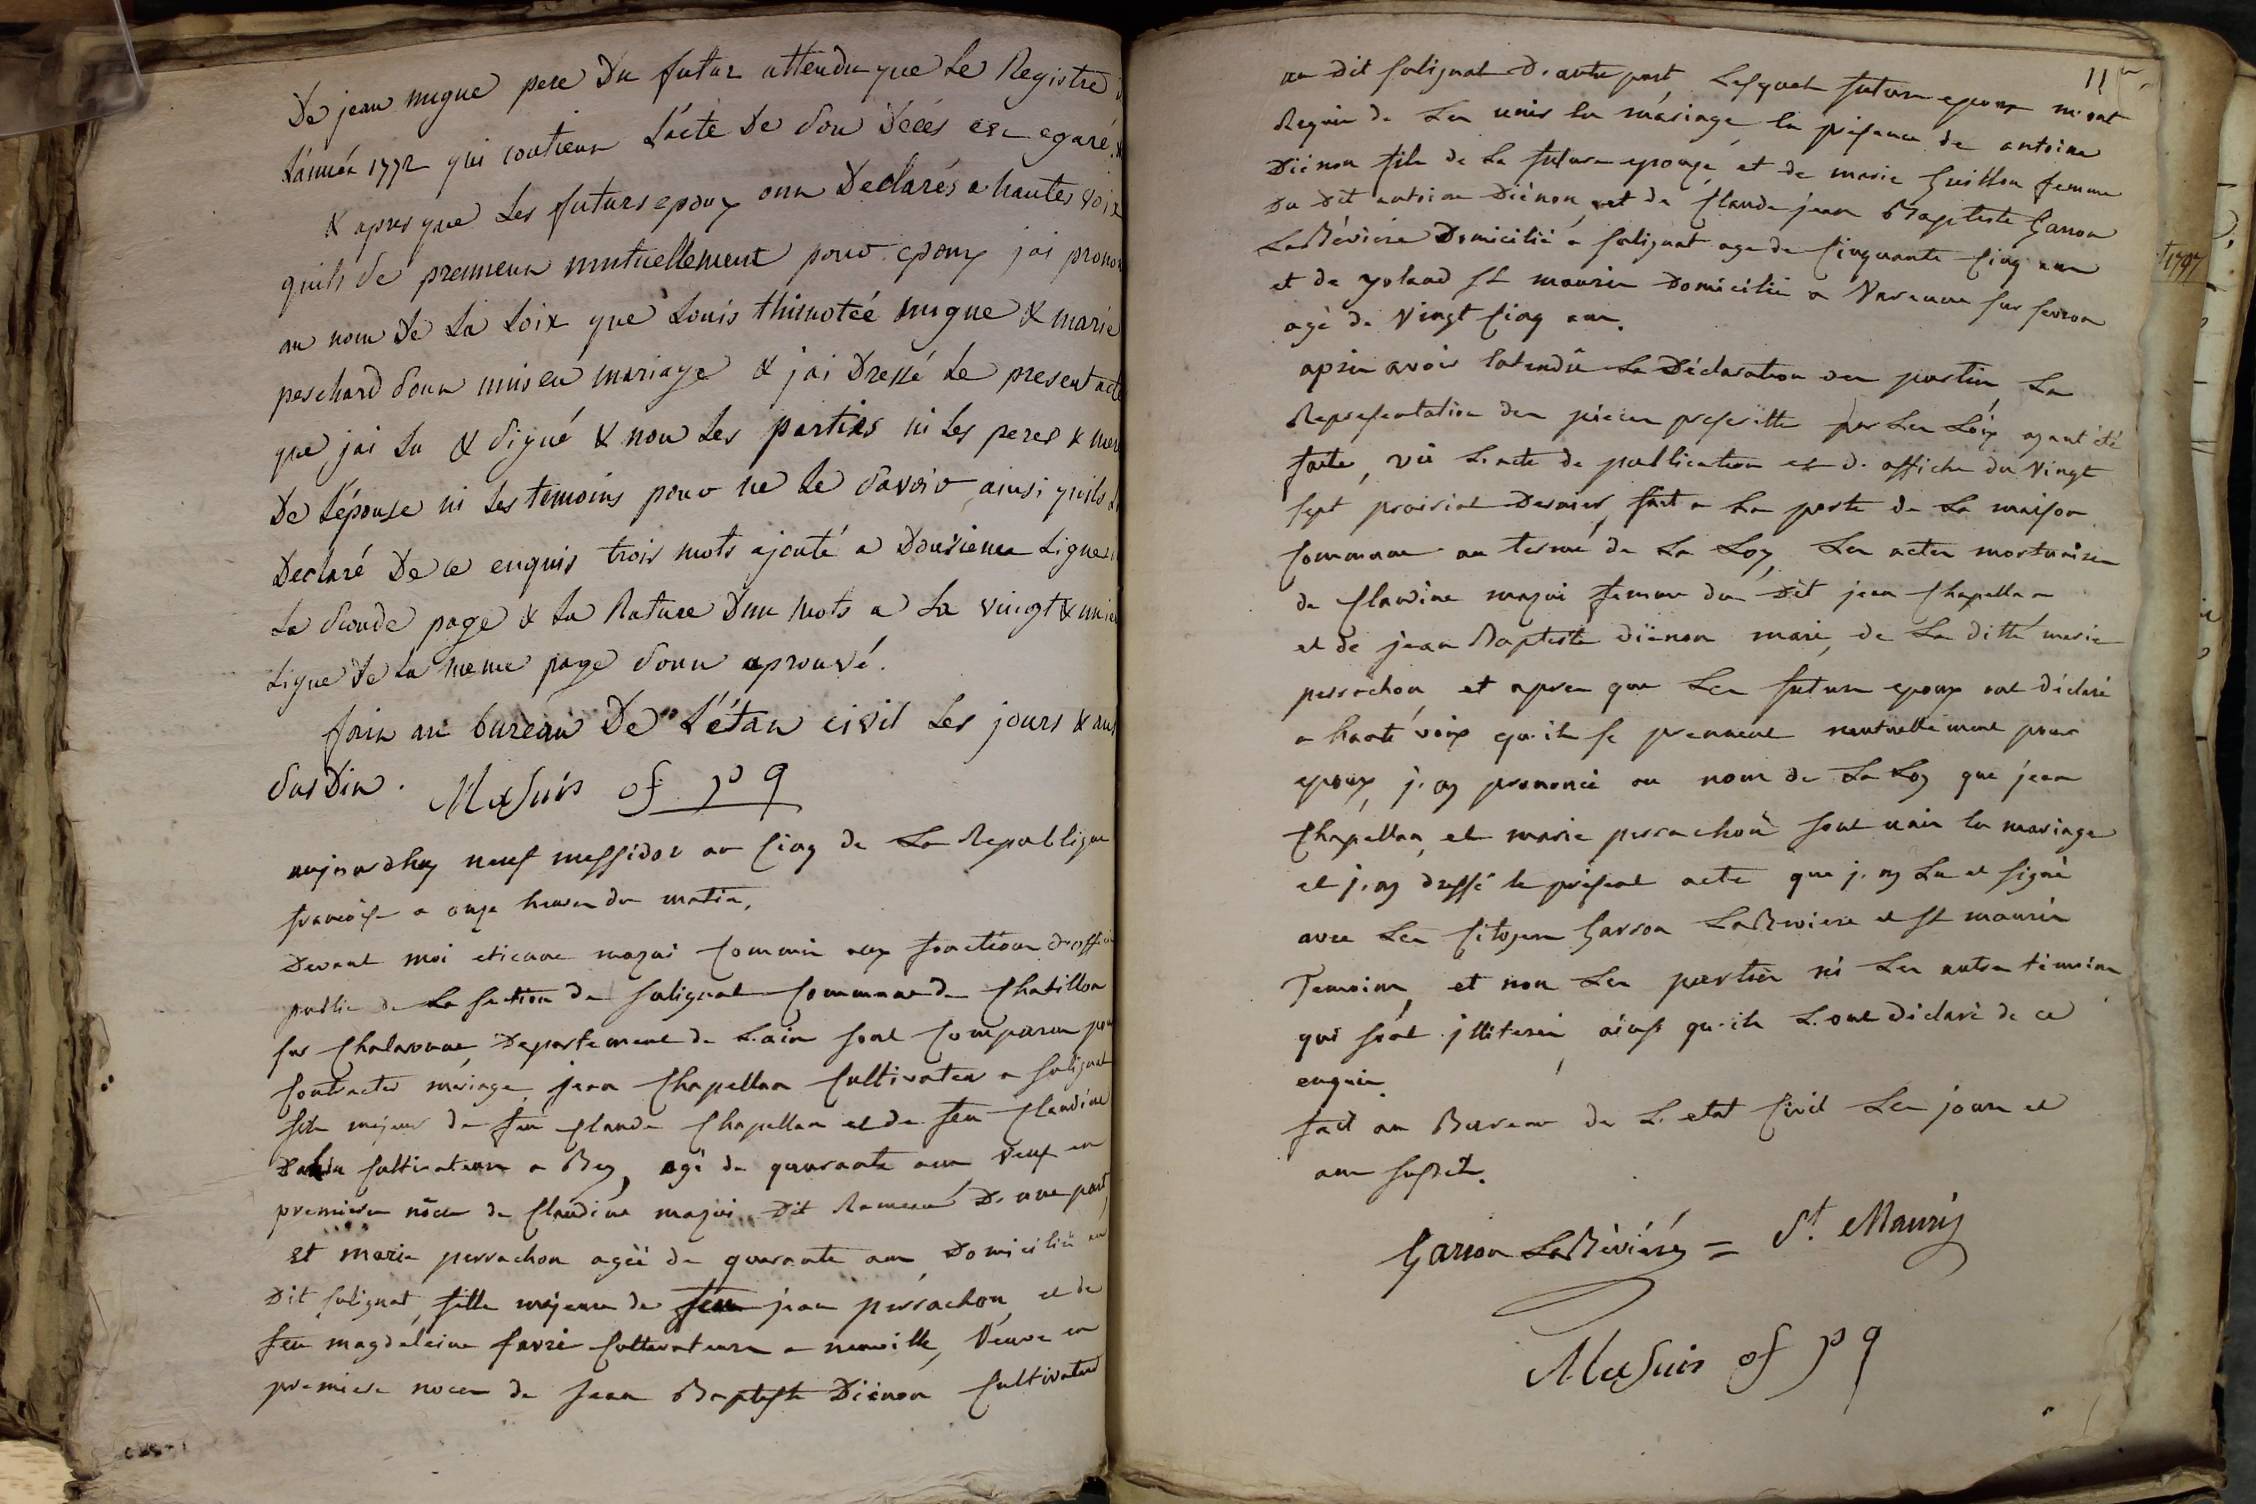 De jean mugue pere Du futur attendu que Le Registre
L'année 1772 qui contient L'acte De son Déces est egaré
& apres que Les futurs epoux ont Declarés a hautes voix
quils se prennent mutuellement pour epoux jai pronon
au nom De La Loix que Louis thimotéé mugue & marie
peschard sont unis en mariage & jai Dressé Le present acte
que jai Lu & signé & non Les parties ni Les peres & mere
De L'épouse ni Les temoins pour ne Le savoir ainsi quils
Declaré De ce enquis trois mots ajouté a Douzieme Ligne
La seconde page & La Rature Dun mots a La vingt & unie
Ligne De La meme page sont aprouvé.
fait au bureau De L'état civil Les jours & ans
susDit. Mesuis of po q
aujourdhuy neuf messidor an Cinq de La Republique
francoise a onze heures du matin,
Devant moi etienne mazui Commis aux fonctions d'offici
public de La section de Salignat Commune de Chatillon
sur Chalaronne, Departement de L'ain sont Comparus pour
Contracter mariage, jean Chapellan Cultivateur a Salignat
fils majeur de feu Claude Chapellan et de feu Claudine
cultivateurs a Bey, agé de quarante ans veuf en
premiere nôces de Claudine mazui dit Rameau D'une part,
et marie perrachon agéé de quarante ans Domiciliéé au
Dit Salignat, fille majeure de feu jean perrachon, et de
feu magdeleine favre Cultivateurs a neuville, Veuve en
premiere noces de Jean Baptiste Diénon Cultivateur
11
au Dit Salignat D'autre part, Lesquels futurs epoux m'ont
Requis de Les unir En mariage En présence de antoine
Diénon fils de La future epouze, et de marie Guillon femme
Du Dit antoine Diénon, et de Claude jean Baptiste Garron
LaBévière Domicilié a Salignat age de Cinquante Cinq ans
et de yoland St mauris Domicilié a Varenne sur
agé de Vingt Cinq ans.
1797
apres avoir Entendû La Déclaration des parties, La
Représentation des pieces prescritte par Les Loix ayant été
faite, vû L'acte de publication et d'affiche du Vingt
Sept prairial Dernier, fait a La porte de La maison
Commune au terme de La Loy, Les actes mortuaires
de Claudine mazui femme du Dit jean Chapellan
et de jean Baptiste diénon mari, de La ditte marie
perrachon, et apres que Les futurs epoux ont déclaré
a haute voix qu'ils se prennent mutuellement pour
epoux, j'ay prononcé au nom de La Loy que jean
Chapellan, et marie perrachon sont unis En mariage
et j'ay dressé le présent acte que j'ay Lu et signé
avec Les Citoyens Garron LaBeviere et St mauris
Temoins, et non Les parties ni Les autres témoins
qui sont jlliterés, ainsi qu'ils L'ont déclaré de ce
enquis.
fait au Bureau de L'etat Civil Les jours et
ans susdit.
Garron LaBévière = St. Mauris
Mesuis of po q